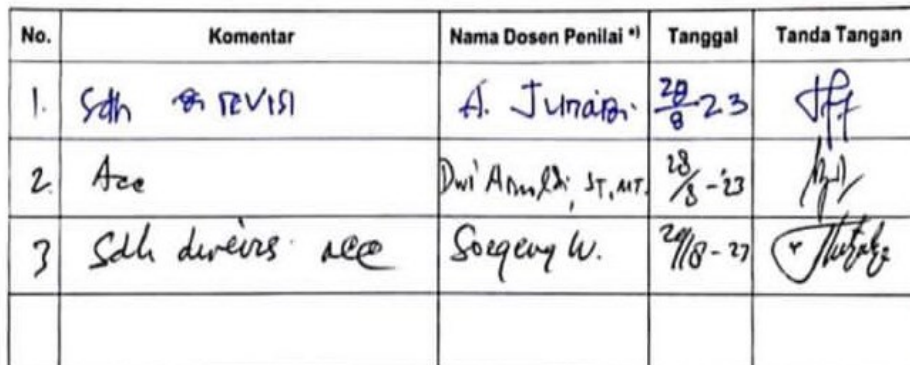 No. Komentar Nama Dosen Penilai *) Tanggal Tanda Tangan
1. Sdh revisi A. Junaidi 28/8-23
2. Acc Dwi Arnoldi, ST, MT. 28/8-'23
3 Sdh acc Soegeng W.